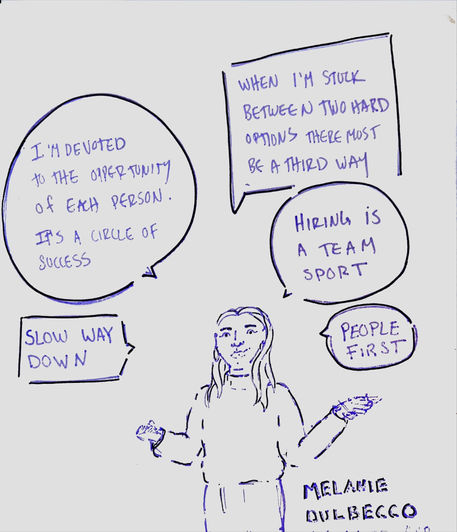 I'M DEVOTED
to THE OPPERTUNITY
OF EACH PERSON.
IT'S A CIRCLE OF
SUCCESS
WHEN I'M STUCK
BETWEEN TWO HARD
OPTIONS THERE MOST
BE A THIRD WAY
HIRING IS
A TEAM
SPORT
SLOW WAY
DOWN
PEOPLE
FIRST
MELANIE
DULBECCO